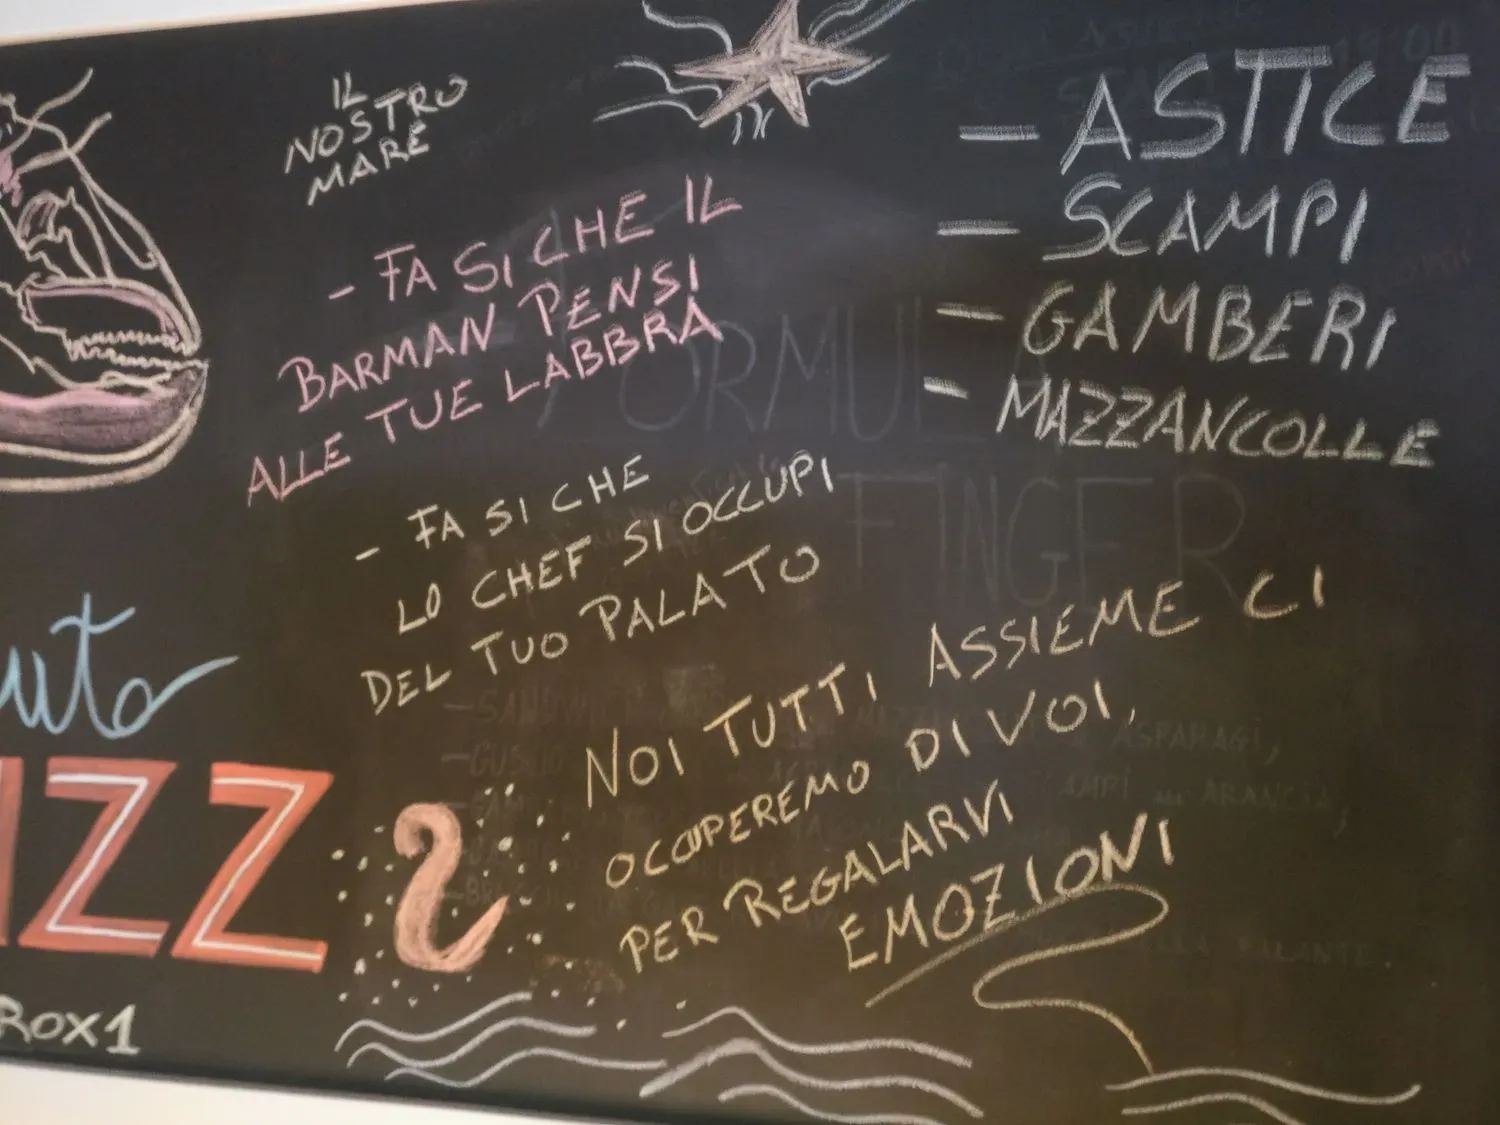 IL
NOSTRO
MARE
- FA SI CHE IL
BARMAN PENSI
ALLE TUE LABBRA
- FA SI CHE
LO CHEF SI OCCUPI
DEL TUO PALATO
- ASTICE
- SCAMPI
- GAMBERI
- MAZZANCOLLE
FORMULA
FINGER
NOI TUTTI ASSIEME CI
OCCUPEREMO DI VOI,
PER REGALARVI
EMOZIONI
ZZ
ROX1